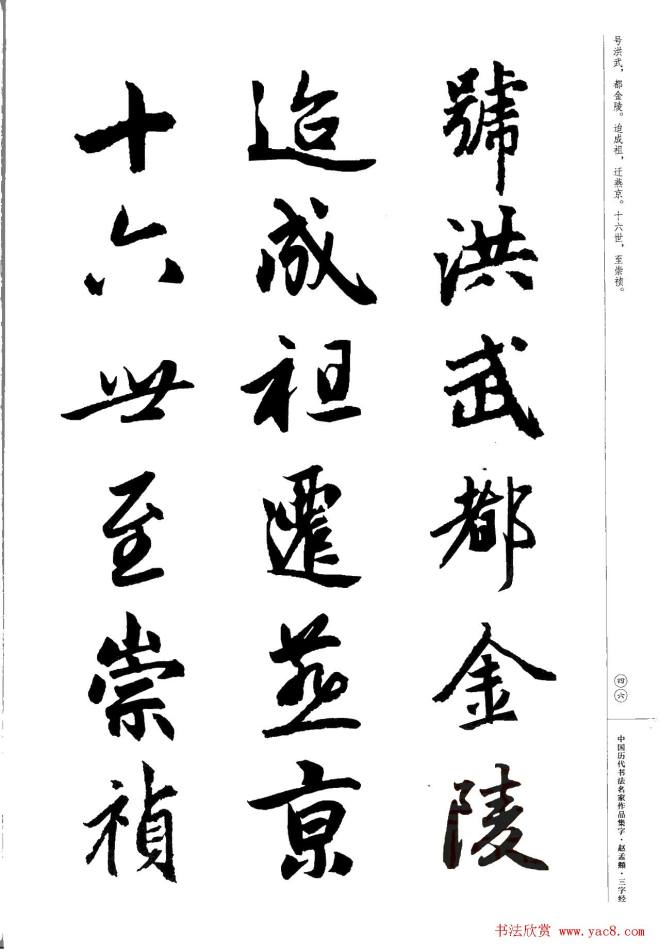 號洪武都金陵
迨成祖遷燕京
十六世至崇禎
号洪武，都金陵。迨成祖，迁燕京。十六世，至崇祯。
四六
中国历代书法名家作品集字·赵孟頫·三字经
书法欣赏 www.yac8.com